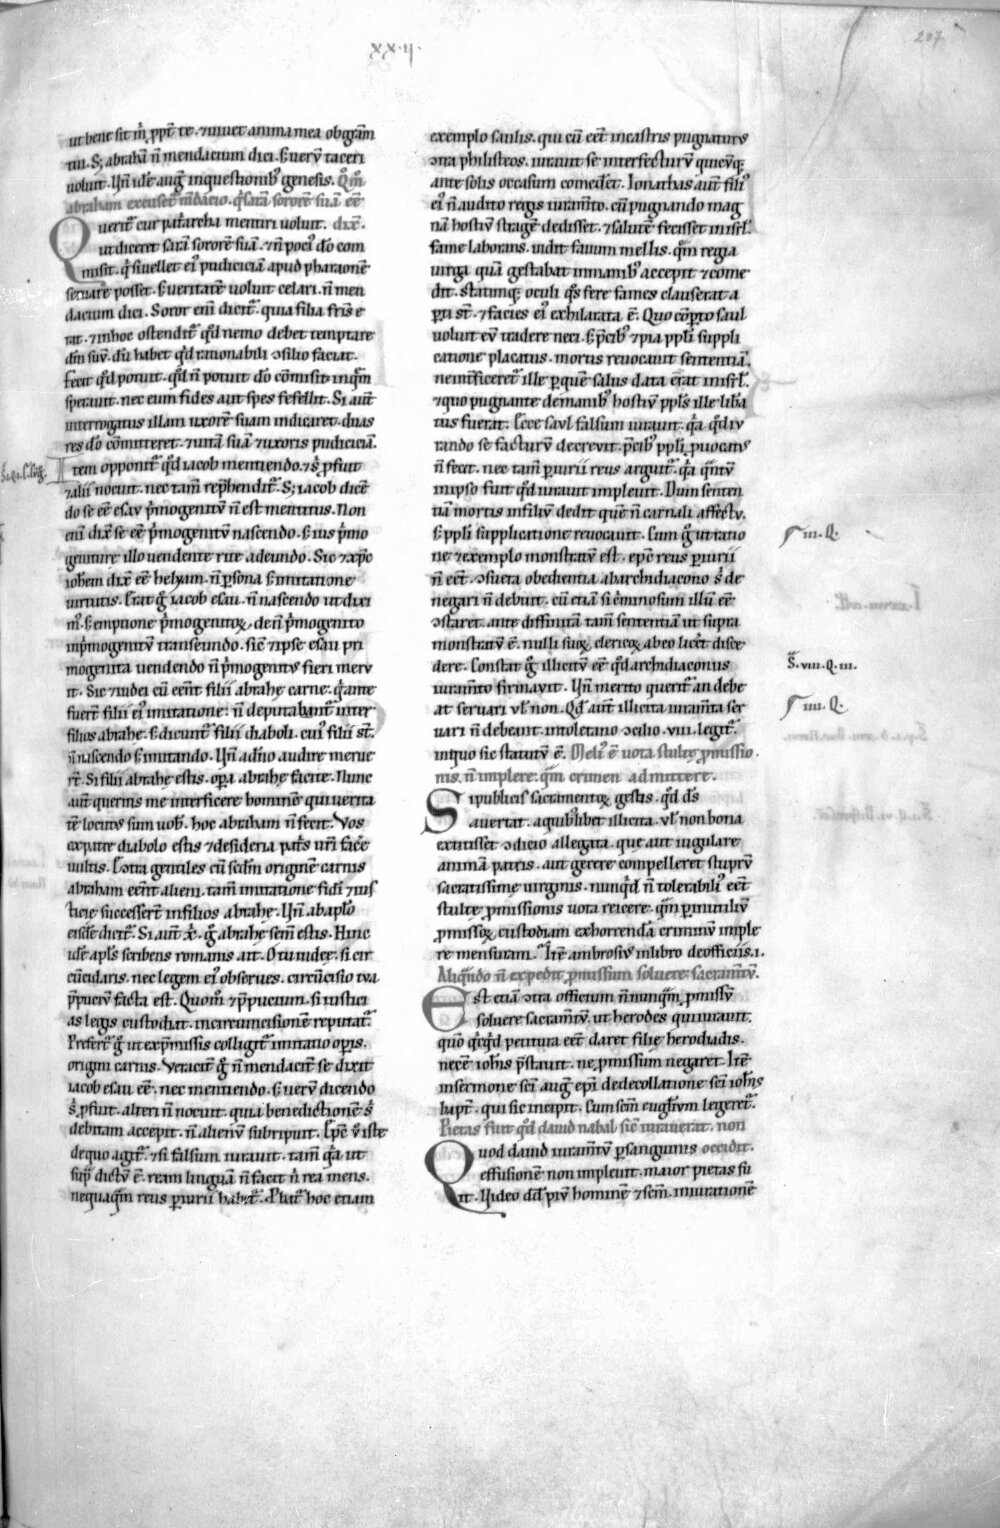 xx.ii.
207
ut bene sit m̄ ꝓpt̄ te. ⁊ uiuet anima mea ob gr̄am
tui. S; abrahā n̄ mendacium dici. s; uerū taceri
uoluit. Vn̄ idē auḡ in questionib; genesis. Qm̄
abraham excuset̄ m̄dacio. q̄ sarā sororē suā eē
Querit̄ cur patriarcha mentiri uoluit. dixē.
ut diceret sarā sororē suā. ⁊ n̄ poti᷒ dō com
misit. q̄ si uellet ei᷒ pudiciciā apud pharaonē
seruare posset. s; ueritatē uoluit celari. n̄ men
dacium dici. Soror enī dicit̄. quia filia fr̄is e
rat. ⁊ in hoc ostendit̄ qd̄ nemo debet temptare
dm̄ suū. dū habet qd̄ rationabili ɔsilio faciat.
fecit qd̄ potuit. qd̄ n̄ potuit dō cōmisit in quē
sperauit. nec eum fides aut spes fefellit. Si aut̄
interrogatus illam uxorē suam indicaret. duas
res dō cōmitteret. ⁊ uitā suā ⁊ uxoris pudiciciā.
Item opponit̄ qd̄ iacob mentiendo. ⁊ s̄ ꝓfuit
⁊ alii nocuit. nec tam̄ rep̄hendit̄. S; iacob dicē
do se eē esau p̄mogenitū n̄ est mentitus. Non
enī dix̄ se eē p̄mogenitū nascendo. s; ius p̄mo
geniture illo uendente rite adeundo. Sic ⁊ xp̄c
ioh̄em dix̄ eē helyam. n̄ p̄sona s; imitatione
uirtutis. Erat ḡ iacob esau. n̄ nascendo ut dixi
m᷒. s; emptione p̄mogenitoꝝ. de n̄ p̄mogenito
in p̄mogenitū transeundo. sic̄ ⁊ ipse esau pri
mogenita uendendo n̄ p̄mogenitus fieri meru
it. Sic ⁊ iudei cū eēnt filii abrahę carne. q̄ ante
fuer̄t filii ei᷒ imitatione: n̄ deputabant̄ inter
filios abrahę. s; dicunt̄ filii diaboli. cui᷒ filii st̄.
n̄ nascendo s; imitando. Vn̄ a dn̄o audire merue
rt̄. Si filii abrahę estis. op̄a abrahę facite. Nunc
aut̄ queritis me interficere hominē qui uerita
tē locutus sum uob̄. hoc abraham n̄ fecit. Vos
ex patre diabolo estis ⁊ desideria patr̄s ur̄i facē
uultis. Ecōtra gentiles cū sc̄dm originē carnis
abraham eēnt alieni. tam̄ imitatione fidi᷒ ⁊ ius
ticie successer̄t in filios abrahę. Vn̄ ab aplō
eisdē dicit̄. Si aut̄ x̄. ḡ abrahę sem̄ estis. Hinc
idē apls̄ scribens romanis ait. O tu iudeę. si cir
cūcidaris. nec legem ei᷒ obserues. circūcisio tua
p̄pueiū facta est. Quom̄ ⁊ p̄puciu͂m. si iustici
as legis custodiat. in circumcisionē reputat̄.
Prefert̄ ḡ ut ex p̄missis colligit̄ imitatio op̄is.
origini carnis. Veracit̄ ḡ n̄ mendacit̄ se dixit
iacob esau eē. nec mentiendo. s; uerū dicendo
s̄ ꝓfuit. alteri n̄ nocuit. quia benedictionē s̄
debitam accepit. n̄ alienū subripuit. Ep̄c ū iste
de quo agit̄. ⁊ si falsum iurauit. tam̄ q̄a ut
sup̄ dictū ē. ream linguā n̄ facit n̄ rea mens.
nequaq̄m reus p̄iurii habet̄. Pbat̄ hoc etiam
exemplo saulis. qui cū eēt in castris pugnaturus
ɔtra philisteos. iurauit se interfecturū quicūq;
ante solis occasum comedet̄. Ionathas aut̄ fili᷒
ei᷒ n̄ audito regis iuram̄to. cū pugnando mag
nā hostiū stragē dedisset. ⁊ salutē fecisset in isrl̄.
fame laborans. uidit fauum mellis. quē in regia
uirga quā gestabat in manib; accepit ⁊ come
dit. statimq; oculi q̄s fere fames clauserat a
p̄ti st̄. ⁊ facies ei᷒ exhilarata ē. Quo cōp̄to saul
uoluit eū tradere neci. s; p̄cib; ⁊ pia pp̄li suppli
catione placatus. mortis reuocauit sententiā.
ne int̄ficeret̄ ille p̄ quē salus data erat in isrl̄.
⁊ quo pugnante de manib; hostiū ppl̄s ille liba
tus fuerat. Ecce saul falsum iurauit. q̄a qd̄ iu
rando se facturū decreuit. p̄cib; ppl̄i ꝓuocatus
n̄ fecit. nec tam̄ p̄iurii reus arguit̄. q̄a q̄ntū
in ipso fuit qd̄ iurauit impleuit. Dum senten
tiā mortis in filiū dedit quē n̄ carnali affectu.
s; ppl̄i supplicatione reuocauit. Cum ḡ ut ratio
ne ⁊ exemplo monstratū est. ep̄c reus p̄iurii
n̄ eēt. ɔsueta obedientia ab archidiacono s̄ de
negari n̄ debuit. cū etiā si c̄minosum illū eē
ɔstaret. ante diffinitā tam̄ sententiā ut supra
monstratū ē. nulli suoꝝ clericoꝝ ab eo licet̄ disce
dere. Constat ḡ illicitū eē qd̄ archidiaconus
iuram̄to firmauit. Vn̄ merito querit̄ an debe
at seruari ul̄ non. Qd̄ aut̄ illicita iuram̄ta ser
uari n̄ debeant. in toletano ɔcilio .viii. legit̄.
in quo sic statutū ē. Meli᷒ ē uota stultę ꝓmissio
nis. n̄ implere. qm̄ crimen admittere.
Si publicis sacramentoꝝ gestis. qd̄ ds̄
auertat. a quib;libet illicita. ul̄ non bona
extitisset ɔdicio allegata. que aut iugulare
animā patris. aut gerere compelleret stuprū
sacratissime uirginis. nunqd̄ n̄ tolerabili᷒ eēt
stultę ꝓmissionis uota reicere. quā p̄ inutiliū
ꝓmissoꝝ custodiam exhorrendā criminū imple
re mensuram. Itē ambrosius in libro de officiis .i.
Aliqn̄do n̄ expedit ꝓmissum soluere sacram̄tū.
Est etiā ɔtra officium n̄nunq̄m ꝓmissū
soluere sacram̄tū. ut herodes qui iurauit.
quō q̄cqd̄ petitura eēt daret filię herodiadis.
necē ioh̄is p̄stauit. ne ꝓmissum negaret. Itē
in sermone sc̄i auḡ ep̄i de decollatione sc̄i ioh̄is
bapt̄. qui sic incipit. Cum sc̄m eugl̄ium legeret̄.
Pietas fuit qd̄ dauid nabal sic̄ iurauerat. non
Quod dauid iuram̄tū p̄ sanguinis occidit.
effusionē non impleuit. maior pietas fu
it. Video dd̄ piū hominē ⁊ sc̄m. in iurationē
iii. Q.
S̄. viii. Q. iii.
iiii. Q.